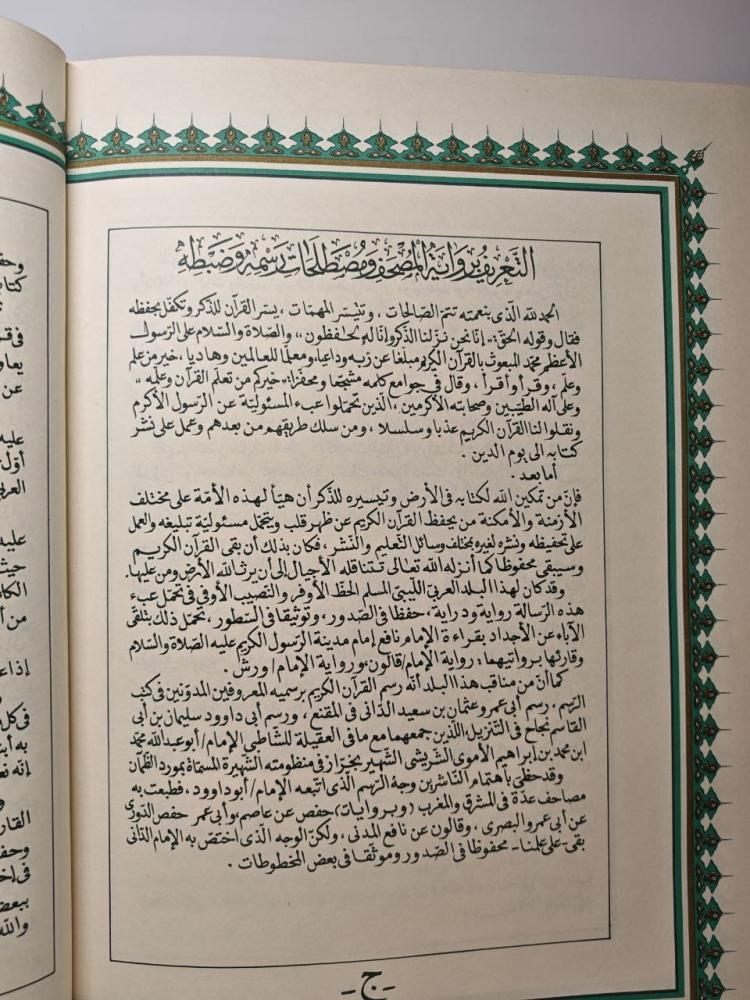 التعريف برواية المصحف ومصطلحات رسمه وضبطه
الحمد لله الّذى بنعمته تتمّ الصّالحات ، وتتيسّر المهمّات ، يسّر القرآن للذكر وتكفّل بحفظه
فقال وقوله الحقّ: ,,إنّا نحن نزّلنا الذّكر وإنّا له لحافظون،، والصّلاة والسّلام على الرّسول
الأعظم محمّد المبعوث بالقرآن الكريم مبلّغا عن ربه وداعيا، ومعلّما للعالمين وهاديا ، خير من علم
وعلّم ، وقرأ وأقرأ ، وقال فى جوامع كلمه مشجّعا ومحفّزا: ,,خيركم من تعلّم القرآن وعلّمه ،،
وعلى آله الطّيبين وصحابته الأكرمين ، الّذين تحمّلوا عبء المسئوليّة عن الرّسول الأكرم
ونقلوا لنا القرآن الكريم عذبا وسلسلا ، ومن سلك طريقهم من بعدهم وعمل على نشر
كتابه إلى يوم الدين .
أما بعد .
فإنّ من تمكين الله لكتابه فى الأرض وتيسيره للذّكر أن هيأ لهذه الأمّة على مختلف
الأزمنة والأمكنة من يحفظ القرآن الكريم عن ظهر قلب ويتحمّل مسئوليّة تبليغه والعمل
على تحفيظه ونشره لغيره بمختلف وسائل التّعليم والنّشر ، فكان بذلك أن بقى القرآن الكريم
وسيبقى محفوظا كما أنزله الله تعالى تتناقله الأجيال إلى أن يرث الله الأرض ومن عليها.
وقد كان لهذا البلد العربىّ اللّيبىّ المسلم الحظّ الأوفر والنّصيب الأوفى فى تحمّل عبء
هذه الرّسالة رواية ودراية، حفظا فى الصّدور، وتوثيقا فى السّطور ، تحمّل ذلك بتلقّى
الآباء عن الأجداد بقراءة الإمام نافع إمام مدينة الرّسول الكريم عليه الصّلاة والسّلام
وقارئها بروايتيهما: رواية الإمام/قالون،ورواية الإمام/ ورش .
كما أنّ من مناقب هذا البلد أنّه رسم القرآن الكريم برسميه المعروفين المدوّنين فى كتب
الرّسم. رسم أبى عمرو عثمان بن سعيد الدّانى فى المقنع ، ورسم أبى داوود سليمان بن أبى
القاسم نجاح فى التّنزيل، اللّذين جمعهما مع ما فى العقيلة للشاطبى الإمام/ أبو عبد الله محمّد
ابن محمد بن إبراهيم الأموى الشّريشى الشّهير بخرّاز فى منظومته الشّهيرة المسمّاة بمورد الظّمآن
وقد حظى باهتمام النّاشرين وجهُ الرّسم الذى اتبعه الإمام/أبو داوود، فطبعت به
مصاحف عدّة فى المشرق والمغرب (وبروايات) حفص عن عاصم،وأبى عمر حفص الدّورى
عن أبى عمرو البصرى ، وقالون عن نافع المدنى ، ولكنّ الوجه الّذى اختصّ به الإمام الدّانى
بقى-على علمنا- محفوظا فى الصّدور وموثّقا فى بعض المخطوطات .
-ج-